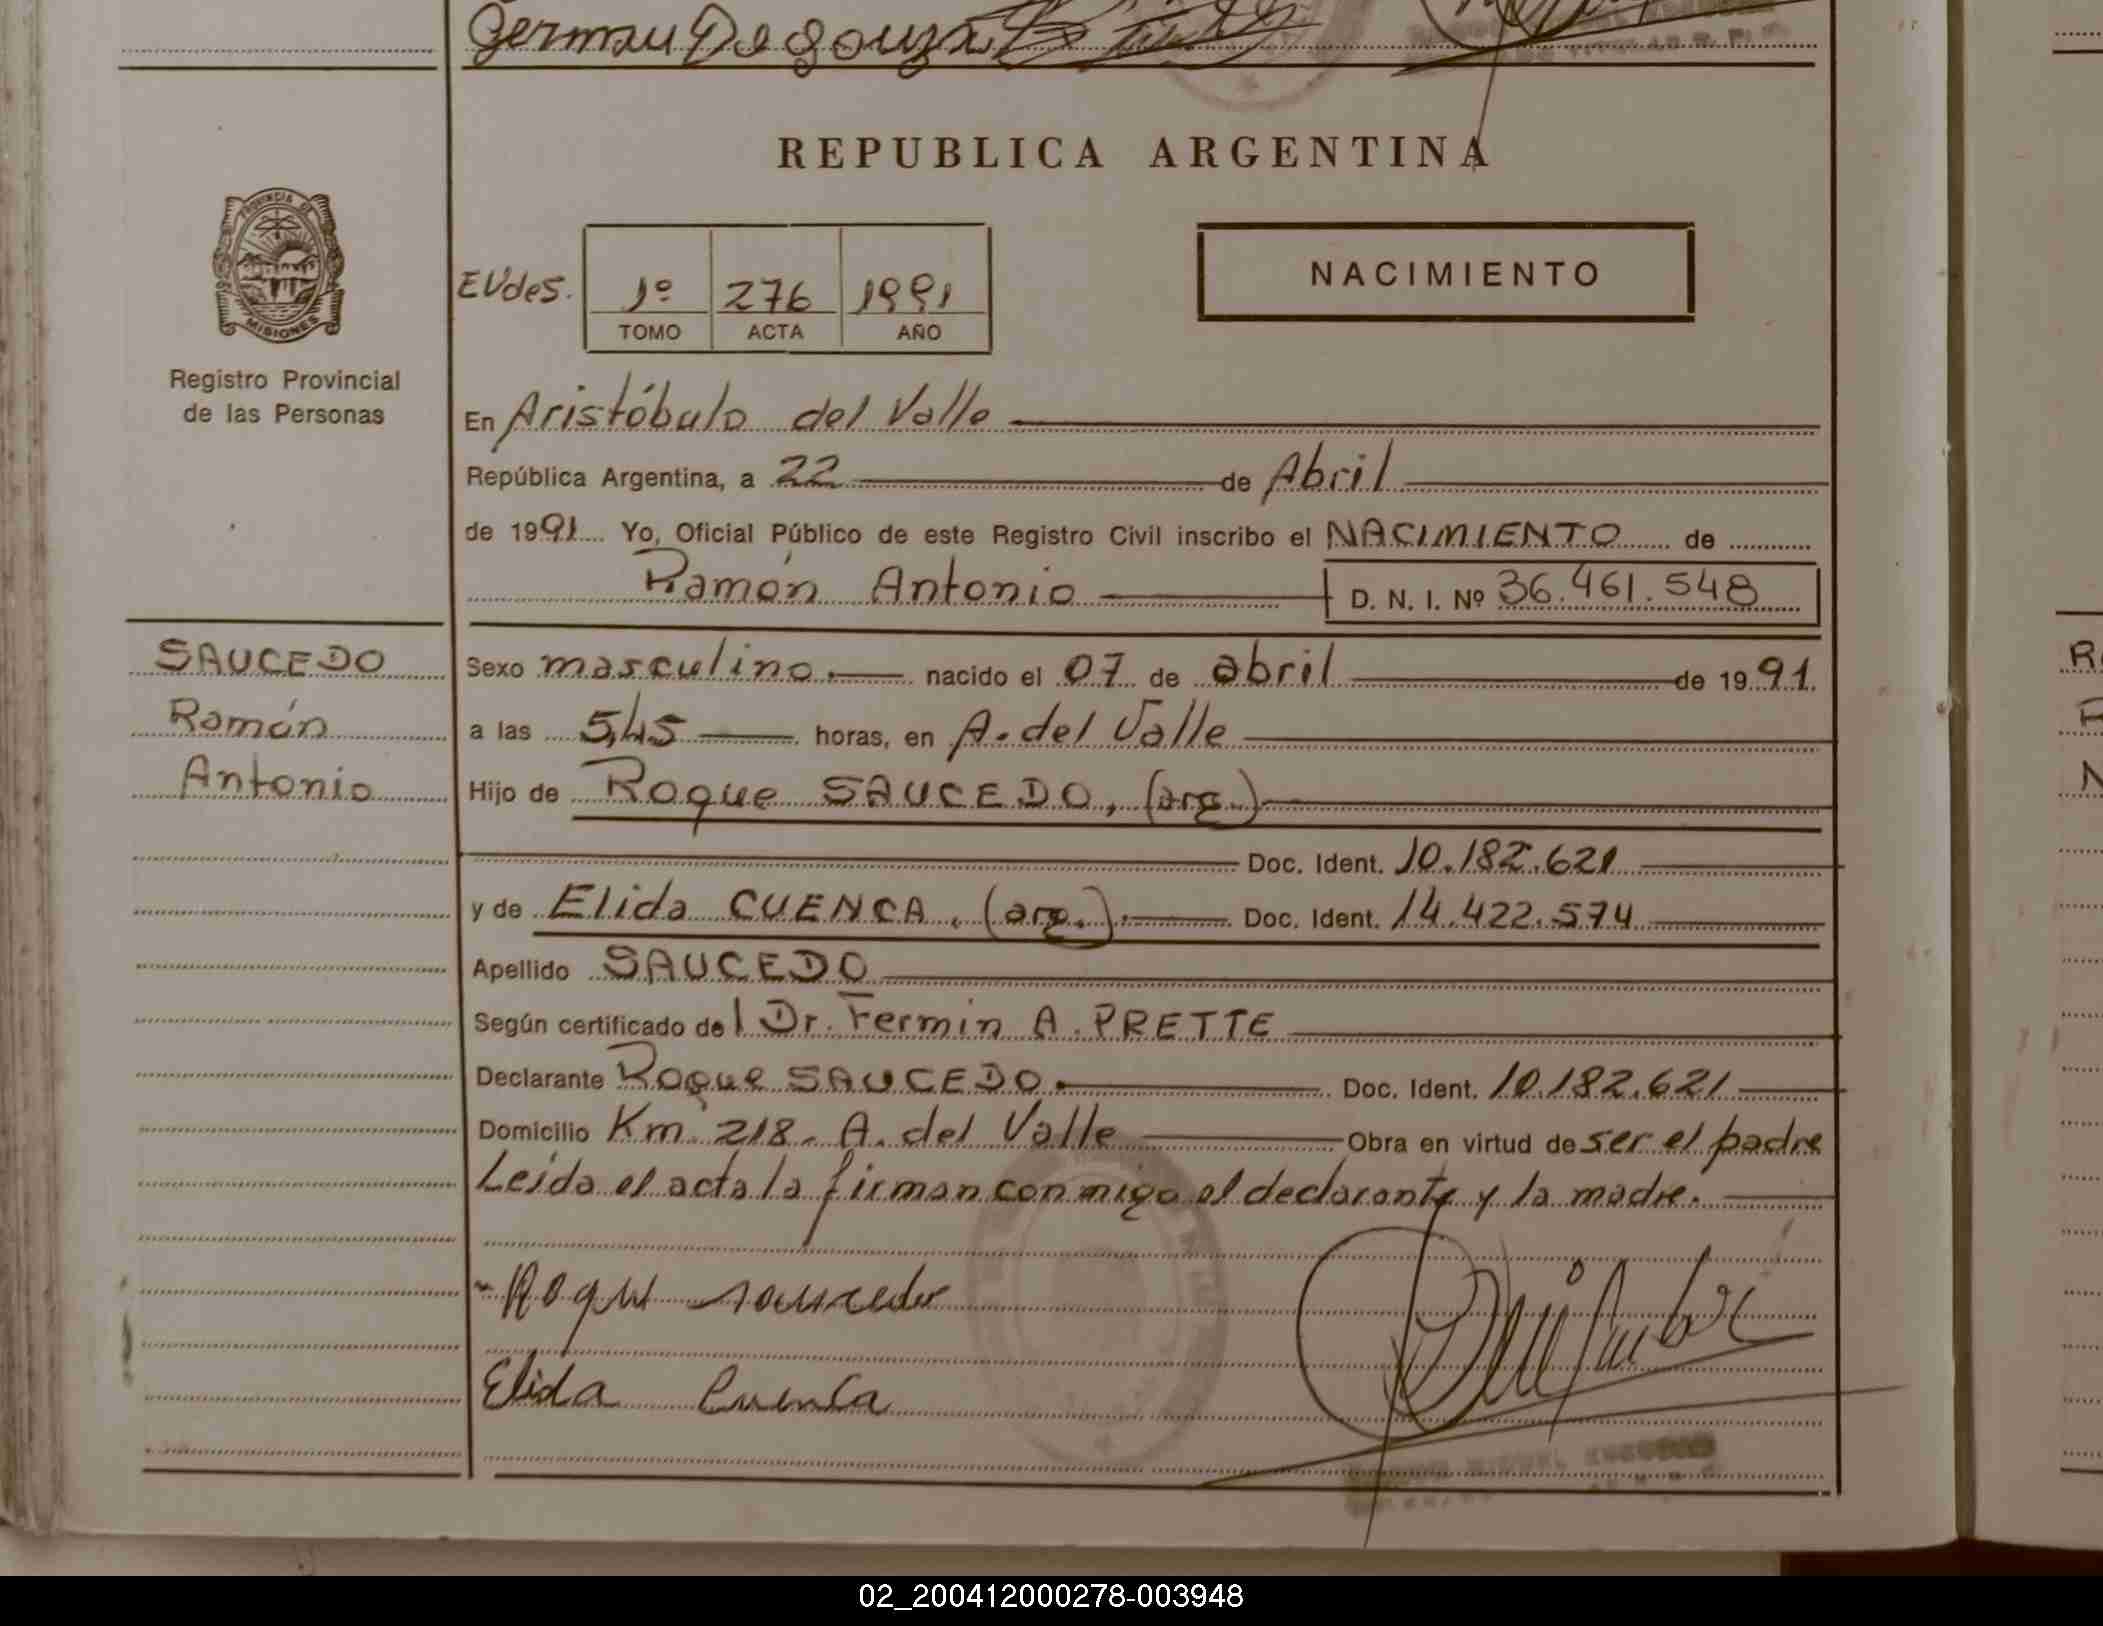 German De Souza
REPUBLICA ARGENTINA
PROVINCIA DE
MISIONES
Registro Provincial
de las Personas
EVdes.
1º 276 1991
TOMO ACTA AÑO
NACIMIENTO
En Aristóbulo del Valle
República Argentina, a 22 de Abril
de 1991 Yo, Oficial Público de este Registro Civil inscribo el NACIMIENTO de
Ramón Antonio D. N. I. Nº 36.461.548
SAUCEDO
Ramón
Antonio
Sexo masculino nacido el 07 de abril de 1991.
a las 5,45 horas, en A. del Valle
Hijo de Roque SAUCEDO, (arg.)
Doc. Ident. 10.182.621
y de Elida CUENCA, (arg.) Doc. Ident. 14.422.574
Apellido SAUCEDO
Según certificado del Dr. Fermin A. PRETTE
Declarante Roque SAUCEDO. Doc. Ident. 10.182.621
Domicilio Km. 218. A. del Valle Obra en virtud de ser el padre
Leída el acta la firman conmigo el declarante y la madre.
Roque saucedo
Elida Cuenca
02_200412000278-003948